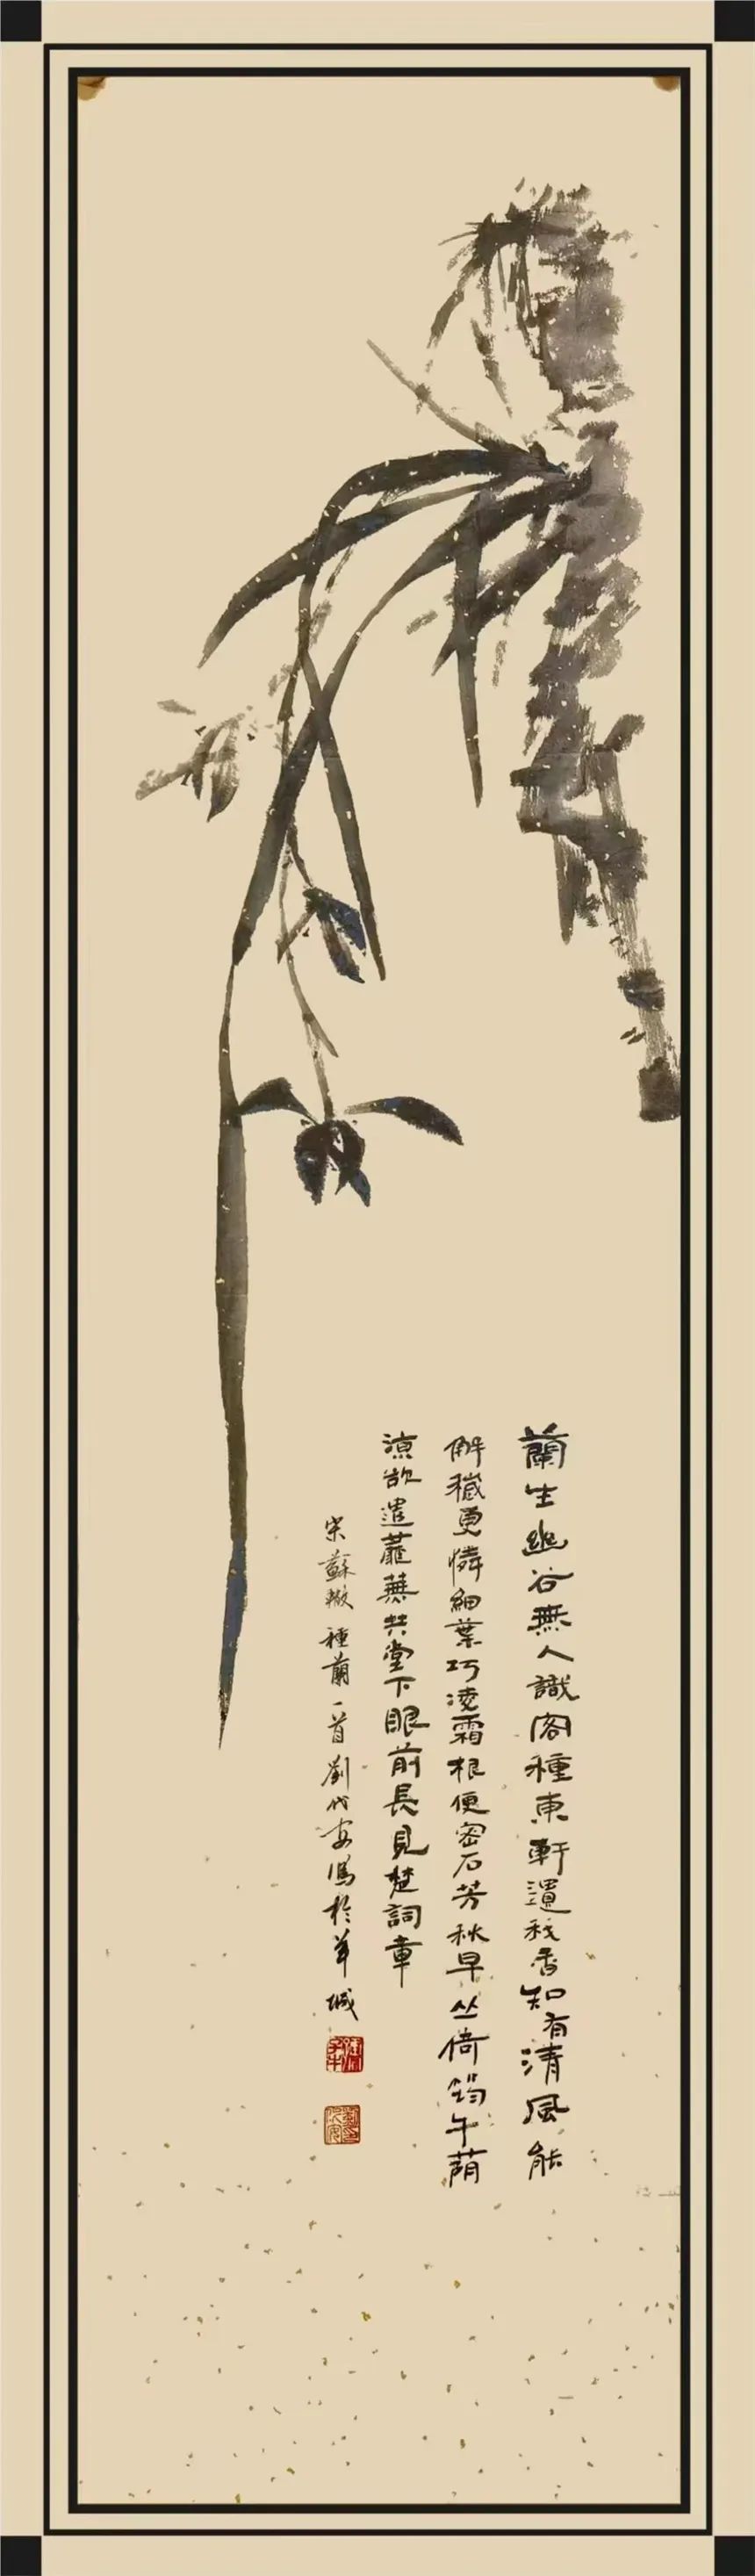 蘭生幽谷無人識客種東軒遺我香知有清風能
解穢更憐細葉巧凌霜根便密石芳秋早丛倚筠午荫
涼欲遣蘼蕪共堂下眼前長見楚詞章
宋蘇轍種蘭一首劉代安寫於羊城